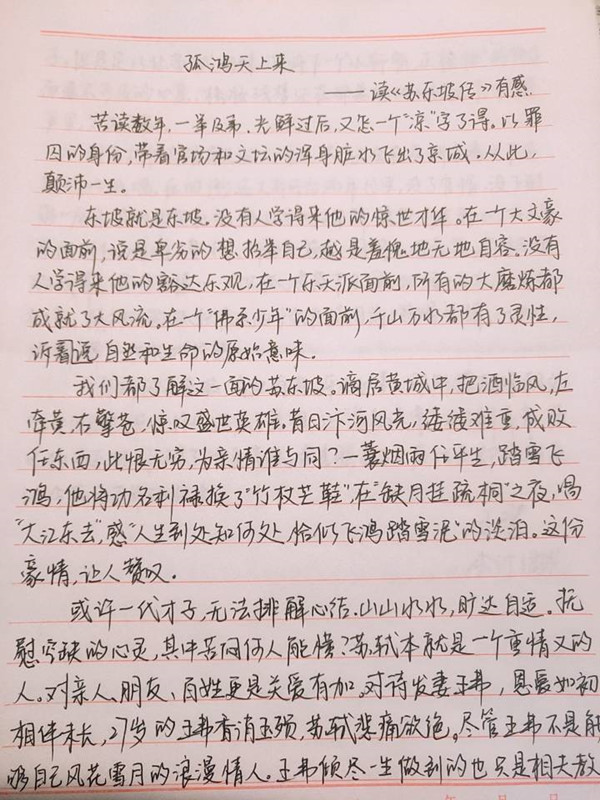 孤鸿天上来
——读《苏东坡传》有感
苦读数年，一举及弟，光鲜过后，又怎一个“凉”字了得。以罪
囚的身份，带着官场和文坛的浑身脏水飞出了京城。从此，
颠沛一生。
东坡就是东坡。没有人学得来他的惊世才华。在一个大文豪
的面前，说是卑劣的想抬举自己，越是羞愧地无地自容。没有
人学得来他的豁达乐观，在一个乐天派面前，所有的大磨炼都
成就了大风流。在一个“佛系少年”的面前，千山万水都有了灵性，
诉说自然和生命的原始意味。
我们都了解这一面的苏东坡。谪居黄城中，把酒临风，左
牵黄，右擎苍，惊叹盛世英雄。昔日汴河风光，缕缕难重，成败
任东西，此恨无穷，为亲情谁与同？一蓑烟雨任平生，踏雪飞
鸿，他将功名利禄换了“竹杖芒鞋”，在“缺月挂疏桐”之夜，唱
“大江东去”，感“人生到处知何处，恰似飞鸿踏雪泥”的淡泊。这份
豪情，让人赞叹。
或许一代才子，无法排解心结。山山水水，旷达自适。抚
慰空缺的心灵，其中苦闷何人能懂？苏轼本就是一个重情义的
人。对亲人、朋友、百姓更是关爱有加。对待发妻王弗，恩爱如初
相伴未长，27岁的王弗香消玉殒，苏轼悲痛欲绝。尽管王弗不是能
够自己风花雪月的浪漫情人。王弗倾尽一生做到的也只是相夫教